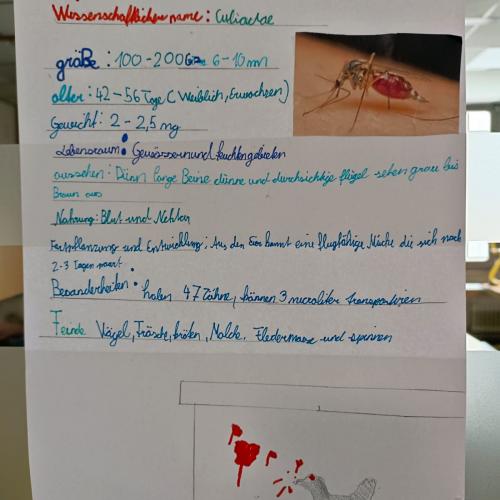 Wissenschaftlicher name: Culiacdae
größe: 100-200 6-10mm
alter: 42-56 Tage (Weiblich, Erwachsen)
Gewicht: 2-2,5 mg
Lebensraum: Gewässern und feuchten gebieten
aussehen: Dünn lange Beine dünne und durchsichtige flügel sehen grau bis
Braun aus
Nahrung: Blut und Nektar
Fortpflanzung und Entwicklung: Aus den Eier kommt eine flugfähige Mücke die sich nach
2-3 Tagen paart.
Besonderheiten: haben 47 Zähne, können 3 microliter transportieren
Feinde Vögel, Frösche, kröten, Molche, Fledermaeuse und spinnen